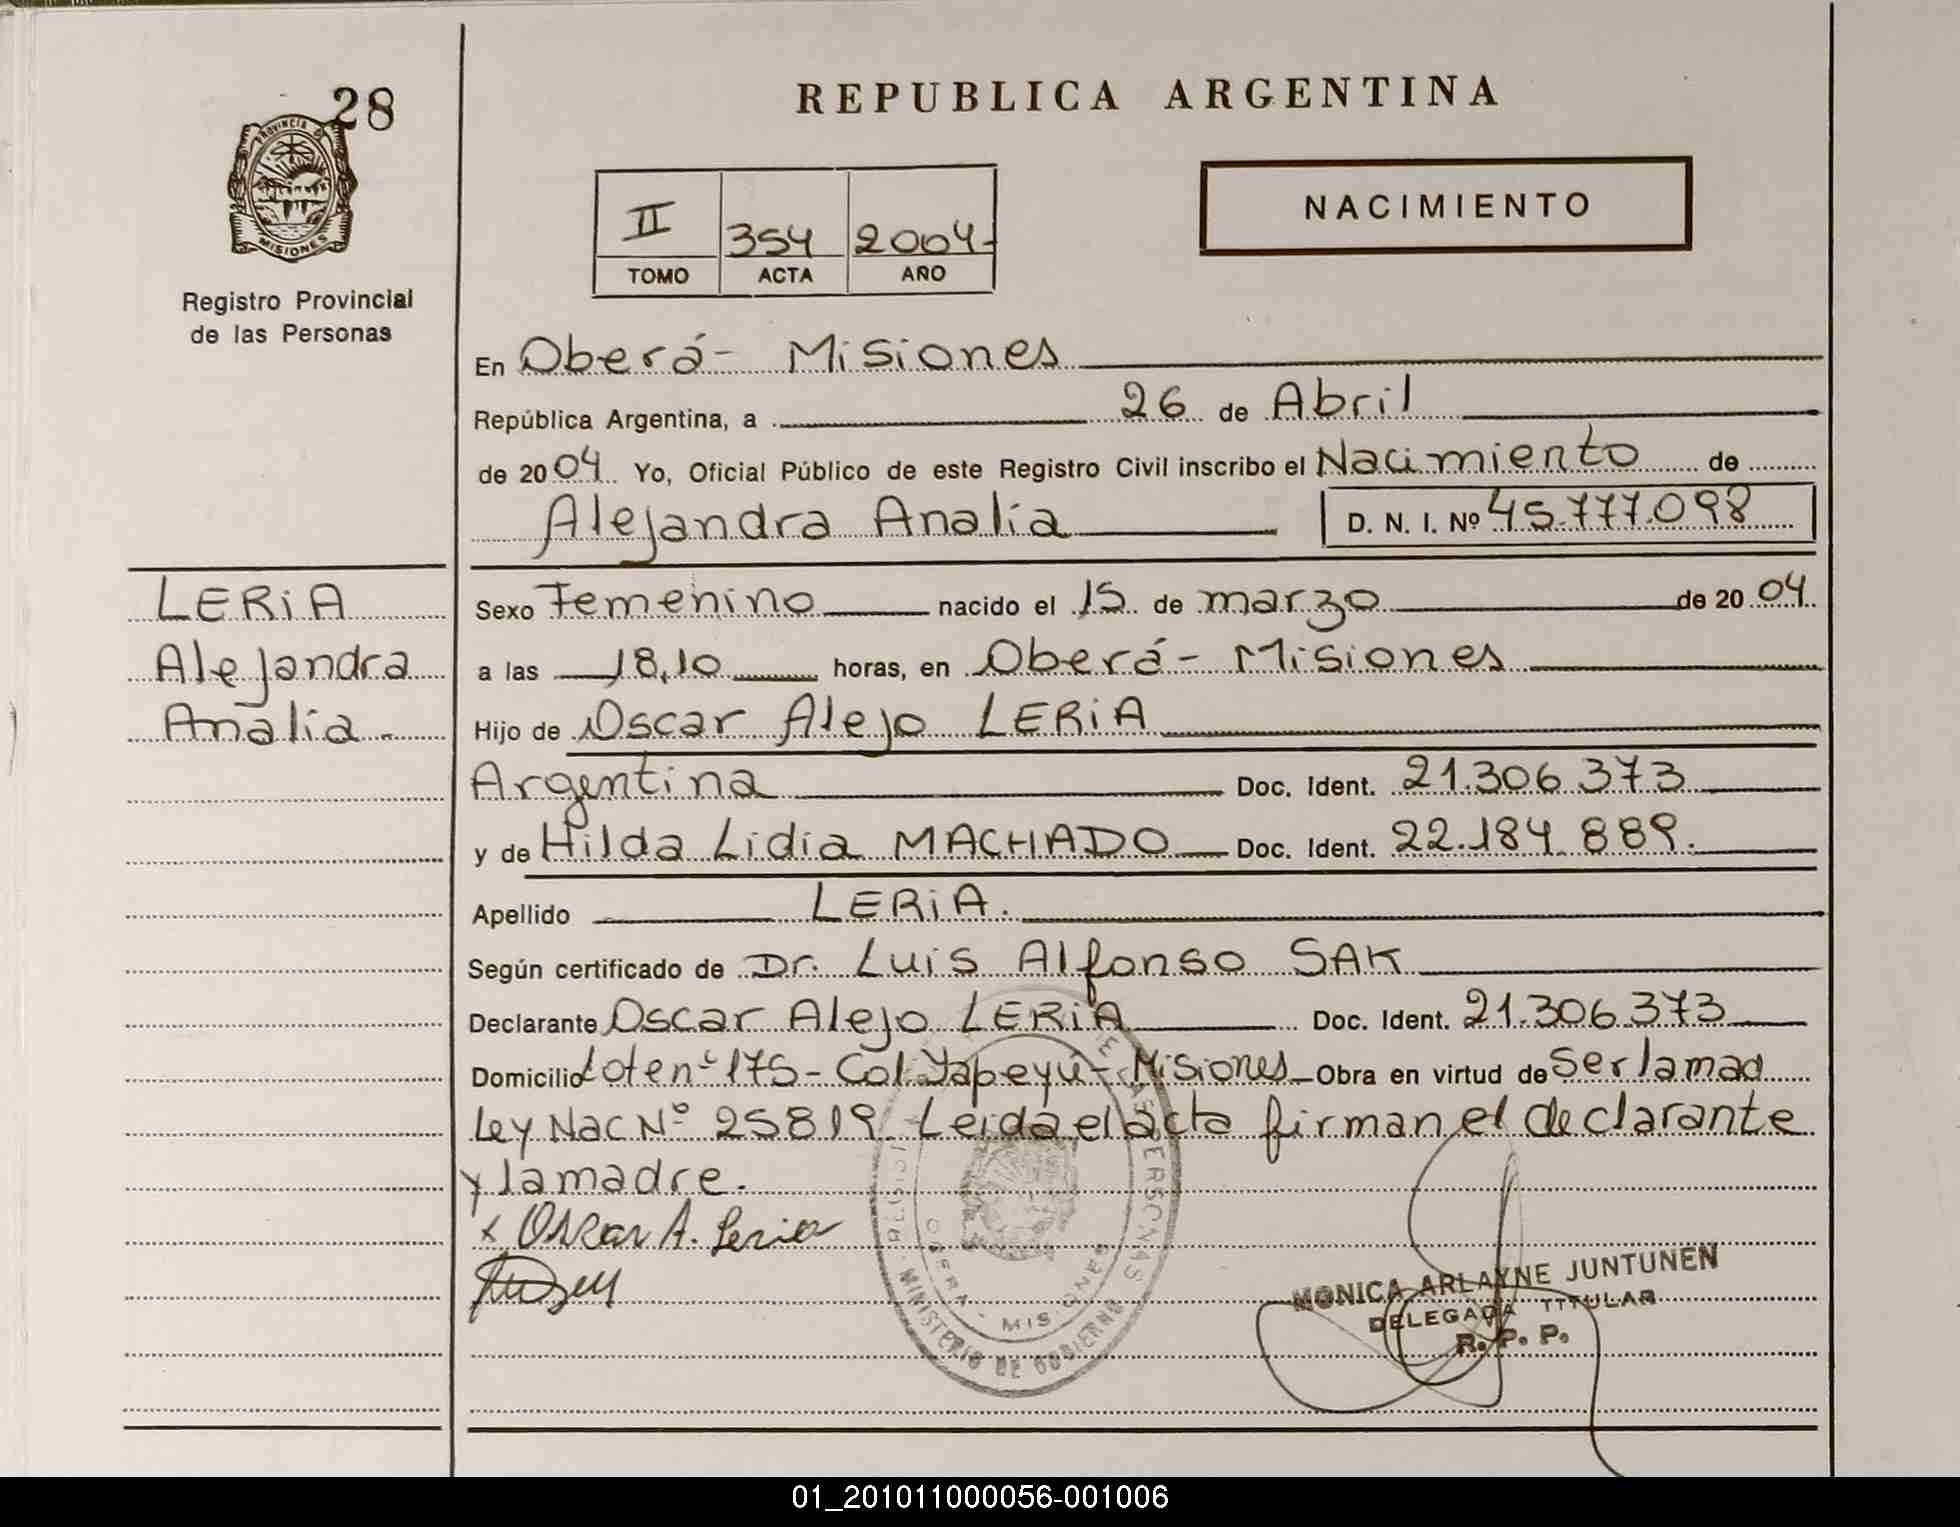 28
PROVINCIA DE
MISIONES
Registro Provincial
de las Personas
REPUBLICA ARGENTINA
NACIMIENTO
II 354 2004-
TOMO ACTA AÑO
En Oberá- Misiones
República Argentina, a 26 de Abril
de 2004 Yo, Oficial Público de este Registro Civil inscribo el Nacimiento de
Alejandra Analía D. N. I. Nº 45.777.098
LERiA
Alejandra
Analía.-
Sexo Femenino nacido el 15 de marzo de 2004
a las 18,10 horas, en Oberá- Misiones
Hijo de Oscar Alejo LERiA
Argentina Doc. Ident. 21.306.373
y de Hilda Lidia MACHADO Doc. Ident. 22.184.889.
Apellido LERiA.
Según certificado de Dr. Luis Alfonso SAK
Declarante Oscar Alejo LERiA Doc. Ident. 21.306.373
Domicilio Lote nº 175- Col. Yapeyú- Misiones Obra en virtud de Ser la mad
Ley Nac Nº 25819. Leida el acta firman el declarante
y la madre.
x Oscar A. Leria
MONICA ARLAYNE JUNTUNEN
DELEGADA TITULAR
R. P. P.
PERSONAS
OBERA - MISIONES
MINISTERIO DE GOBIERNO
01_201011000056-001006